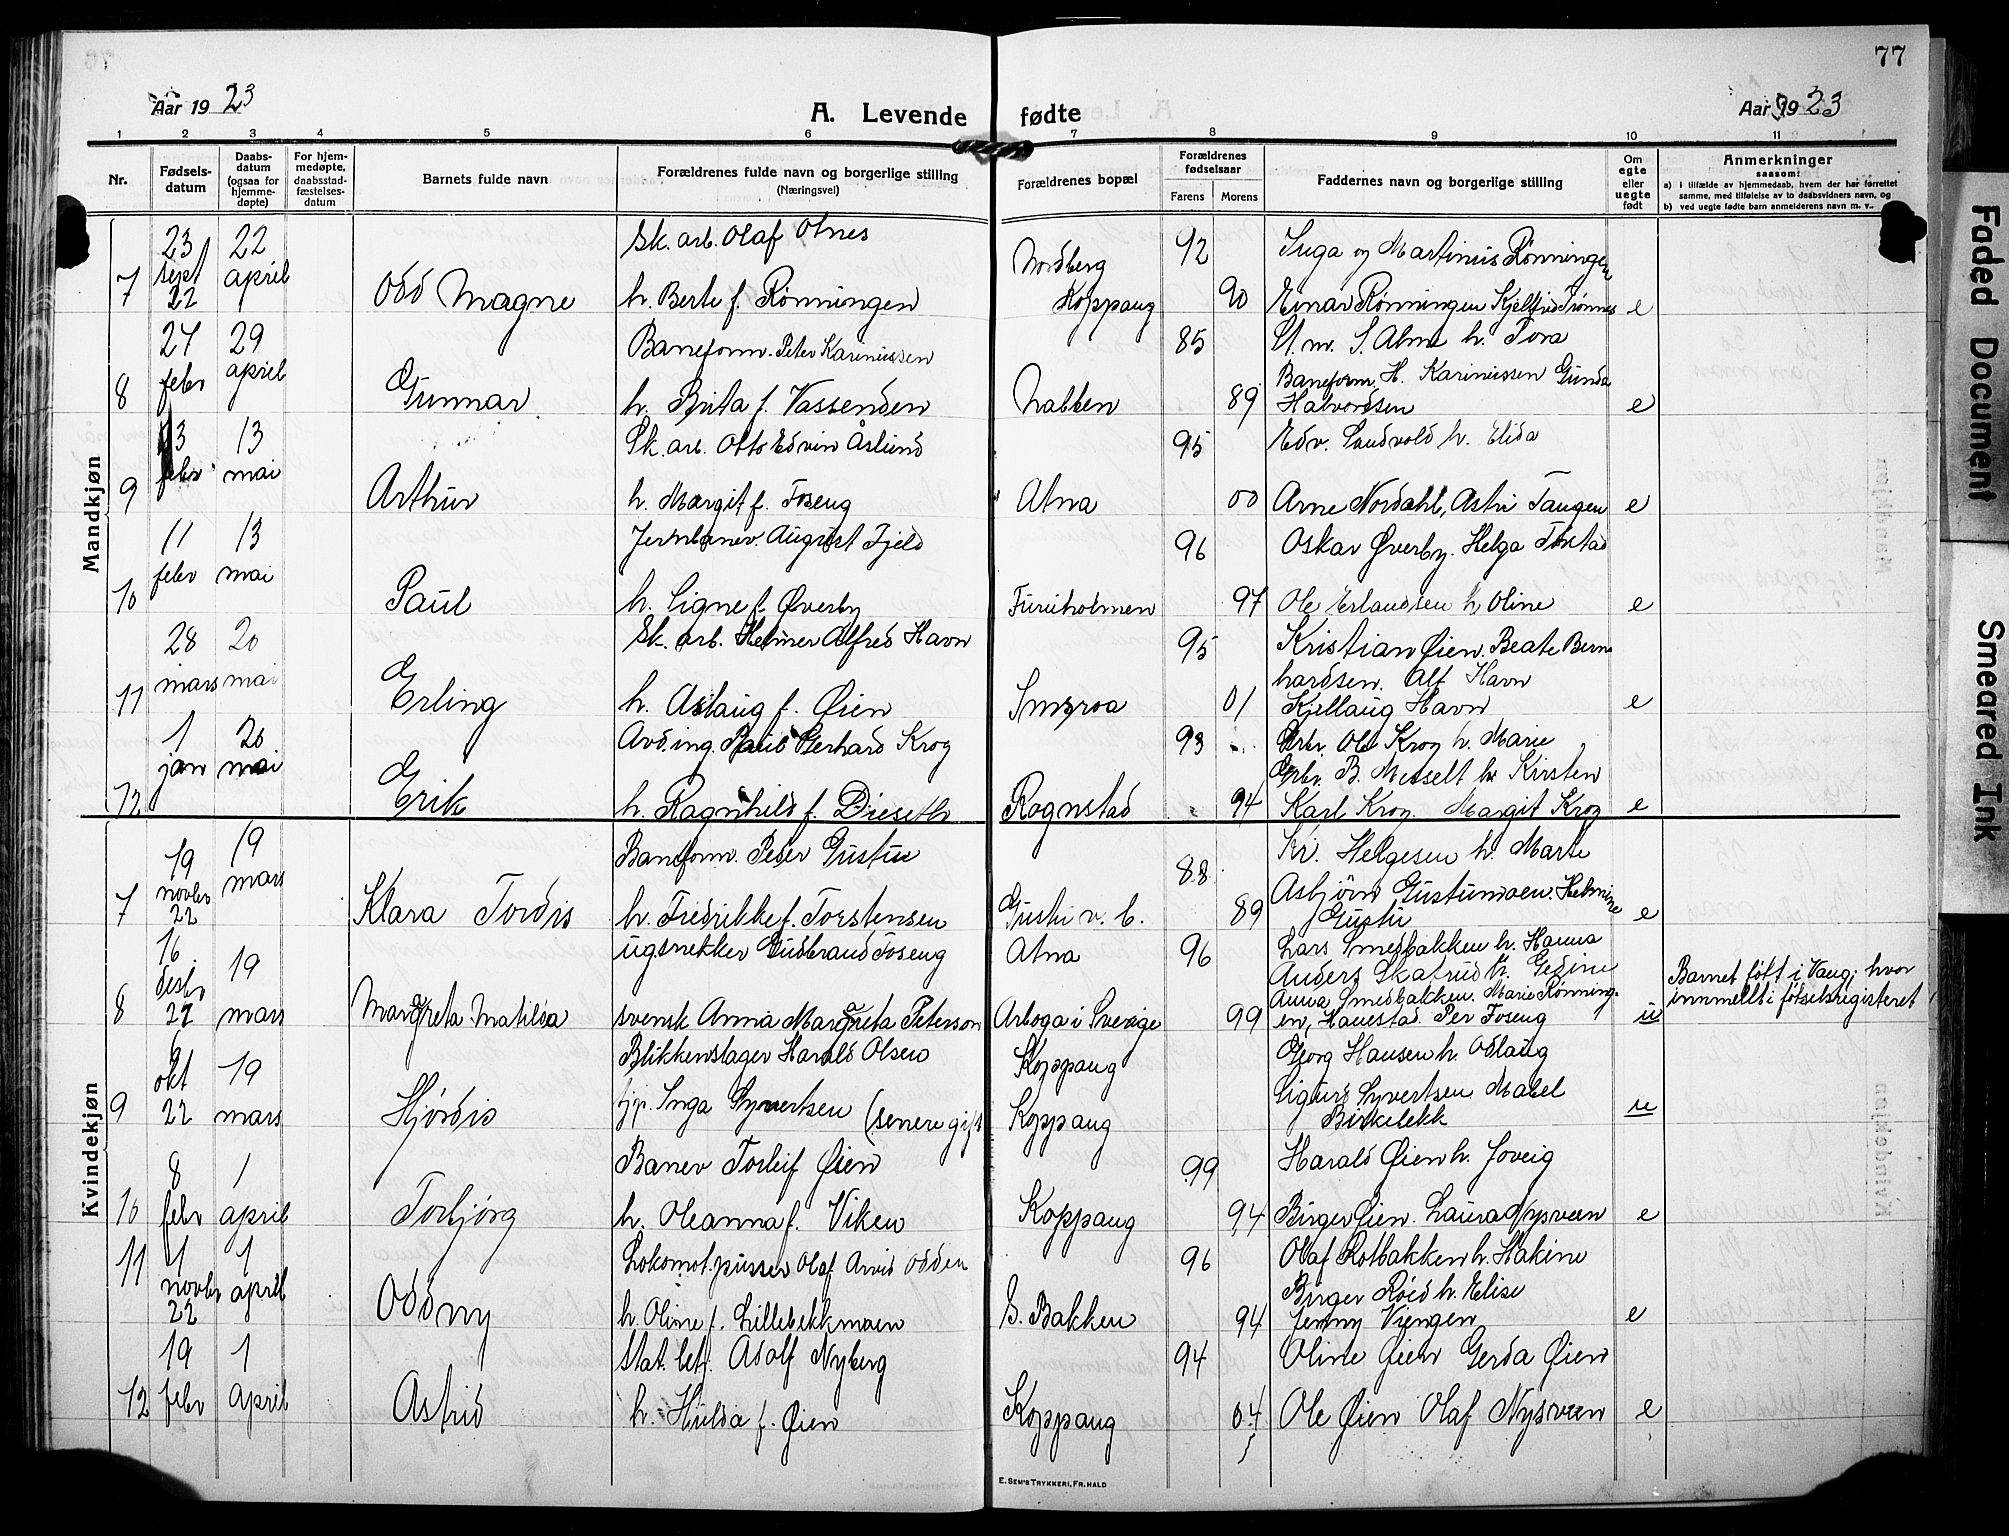 77
Aar 1923
A. Levende fødte
Aar 1923
1 2 3 4 5 6 7 8 9 10 11
Nr.
Fødsels-
datum
Daabs-
datum
(ogsaa for
hjemme-
døpte)
For hjem-
medøpte,
daabsstad-
fæstelses-
datum
Barnets fulde navn
Forældrenes fulde navn og borgerlige stilling
(Næringsvei)
Forældrenes bopæl
Forældrenes
fødselsaar
Farens Morens
Faddernes navn og borgerlige stilling
Om
egte
eller
uegte
født
Anmerkninger
saasom:
a) i tilfælde av hjemmedaab, hvem der har forrettet
samme, med tilføielse av to daabsvidners navn, og
b) ved uegte fødte barn anmelderens navn m. v.
Mandkjøn
23 22 Sk. arb. Olaf Olnes Nordberg 92 Inga og Martinius Rønningen
7 sept 22 april Odd Magne h. Berte f. Rønningen Koppang 90 Einar Rønningen Kjelfrid Trønnes e
27 29 Baneform. Peter Karinussen 85 St. m. S. Alme h. Tora
8 febr april Gunnar h. Brita f. Vassenden Nabben 89 Baneform. H. Karinussen Gunda
Halvorsen e
13 13 Sk. arb. Otto Edvin Åslund 95 Edv. Sandvold h. Elida
9 febr mai Arthur h. Margit f. Foseng Atna 00 Arne Nordahl, Astri Tangen e
11 13 Jernbanev. August Fjeld 96 Oskar Øverby. Helga
10 febr mai Paul h. Signe f. Øverby Furuholmen 97 Ole Erlandsen h. Oline e
28 20 Sk. arb. Helmer Alfred Havn 95 Kristian Øien. Beate Bern
hardsen. Alf Havn
11 mars mai Erling h. Aslaug f. Øien 01 Kjellaug Havn e
1 20 Avd.ing. Paul Gerhard Krog 93 Grbr. Ole Krog h. Marie
Grbr. B. Messelt h. Kirsten
12 jan mai Erik h. Ragnhild f. Dieseth Rognstad 94 Karl Krog. Margit Krog e
Kvindekjøn
19 19 Baneform. Peder Gustu 88 Kr. Helgesen h. Marte
Asbjørn Gustumoen. Helmine
7 novbr 22 mars Klara Tordis h. Fredrikke f. Torstensen Gustu v. b. 89 Gustu e
16 19 ugsnekker Gudbrand Foseng Atna 96 Lars Smedbakken h. Hanna
Anders Skatrud h. Gedine
Barnet født i Vang; hvor
Anna Smedbakken. Marie Rønning-
innmeldt i fødselsregisteret
8 desbr 22 mars Margreta Matilda svensk Anna Margreta Peterson Arboga i Sverige 99 en, Hanestad. Per Foseng u
6 19 Blikkenslager Harald Olsen Koppang Georg Hansen h. Odlaug
Sigurd Syvertsen Mabel
9 okt 22 mars Hjørdis pp. Inga Syvertsen (senere gift Koppang Birkebekk u
8 1 Banev Torleif Øien 99 Harald Øien h. Joveig
10 febr april Torbjørg h. Oleanna f. Viken Koppang 94 Birger Øien. Laura Nysveen e
11 1 1 Lokomot. pusser Olaf Arvid Odden 96 Olaf Rotbakken h. Hakine
Birger Røed h. Elise
novbr 22 april Oddny h. Oline f. Lillebekkmoen S. Bakken 94 Jenny Viengen e
19 1 Stat. betj. Adolf Nyberg 94 Oline Øien Gerda Øien
12 febr april Astrid h. Hulda f. Øien Koppang 04 Ole Øien Olaf Nysveen e
E. SEM'S TRYKKERI, FR. HALD
Faded Document
Smeared Ink